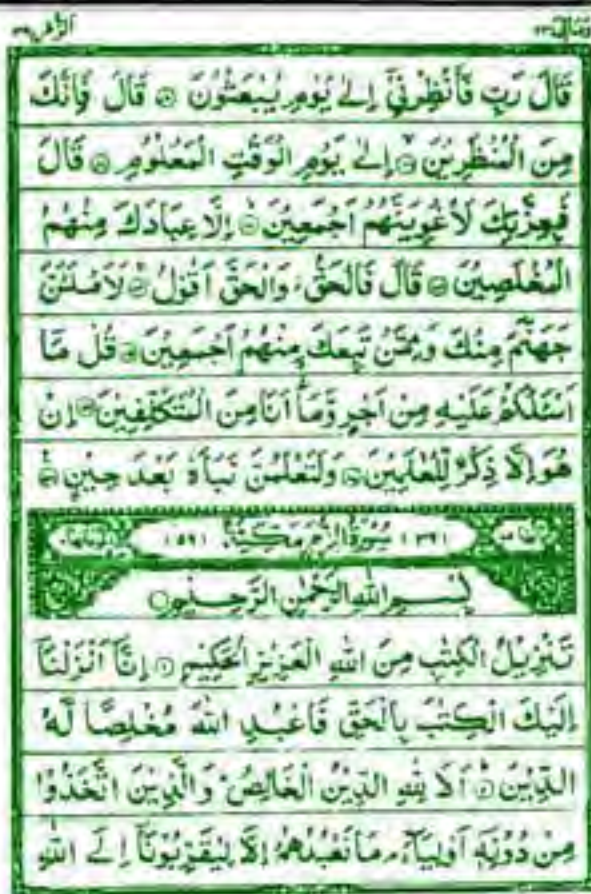 الزمر ٣٩ ومالى ٢٣
قَالَ رَبِّ فَأَنْظِرْنِيْٓ إِلٰى يَوْمِ يُبْعَثُوْنَ ۞ قَالَ فَإِنَّكَ
مِنَ الْمُنْظَرِيْنَ ۞ إِلٰى يَوْمِ الْوَقْتِ الْمَعْلُوْمِ ۞ قَالَ
فَبِعِزَّتِكَ لَأُغْوِيَنَّهُمْ اَجْمَعِيْنَ ۞ إِلَّا عِبَادَكَ مِنْهُمُ
الْمُخْلَصِيْنَ ۞ قَالَ فَالْحَقُّ وَالْحَقَّ اَقُوْلُ ۞ لَاَمْلَئَنَّ
جَهَنَّمَ مِنْكَ وَمِمَّنْ تَبِعَكَ مِنْهُمْ اَجْمَعِيْنَ ۞ قُلْ مَآ
اَسْئَلُكُمْ عَلَيْهِ مِنْ اَجْرٍ وَّمَآ اَنَا مِنَ الْمُتَكَلِّفِيْنَ ۞ اِنْ
هُوَ اِلَّا ذِكْرٌ لِّلْعٰلَمِيْنَ ۞ وَلَتَعْلَمُنَّ نَبَاَهٗ بَعْدَ حِيْنٍ ۞
(٣٩) سُوْرَةُ الزُّمَرِ مَكِّيَّةٌ (٥٩)
بِسْمِ اللهِ الرَّحْمٰنِ الرَّحِيْمِ
تَنْزِيْلُ الْكِتٰبِ مِنَ اللهِ الْعَزِيْزِ الْحَكِيْمِ ۞ اِنَّآ اَنْزَلْنَآ
اِلَيْكَ الْكِتٰبَ بِالْحَقِّ فَاعْبُدِ اللهَ مُخْلِصًا لَّهُ
الدِّيْنَ ۞ اَلَا لِلّٰهِ الدِّيْنُ الْخَالِصُ وَالَّذِيْنَ اتَّخَذُوْا
مِنْ دُوْنِهٖٓ اَوْلِيَآءَ مَا نَعْبُدُهُمْ اِلَّا لِيُقَرِّبُوْنَآ اِلَى اللهِ